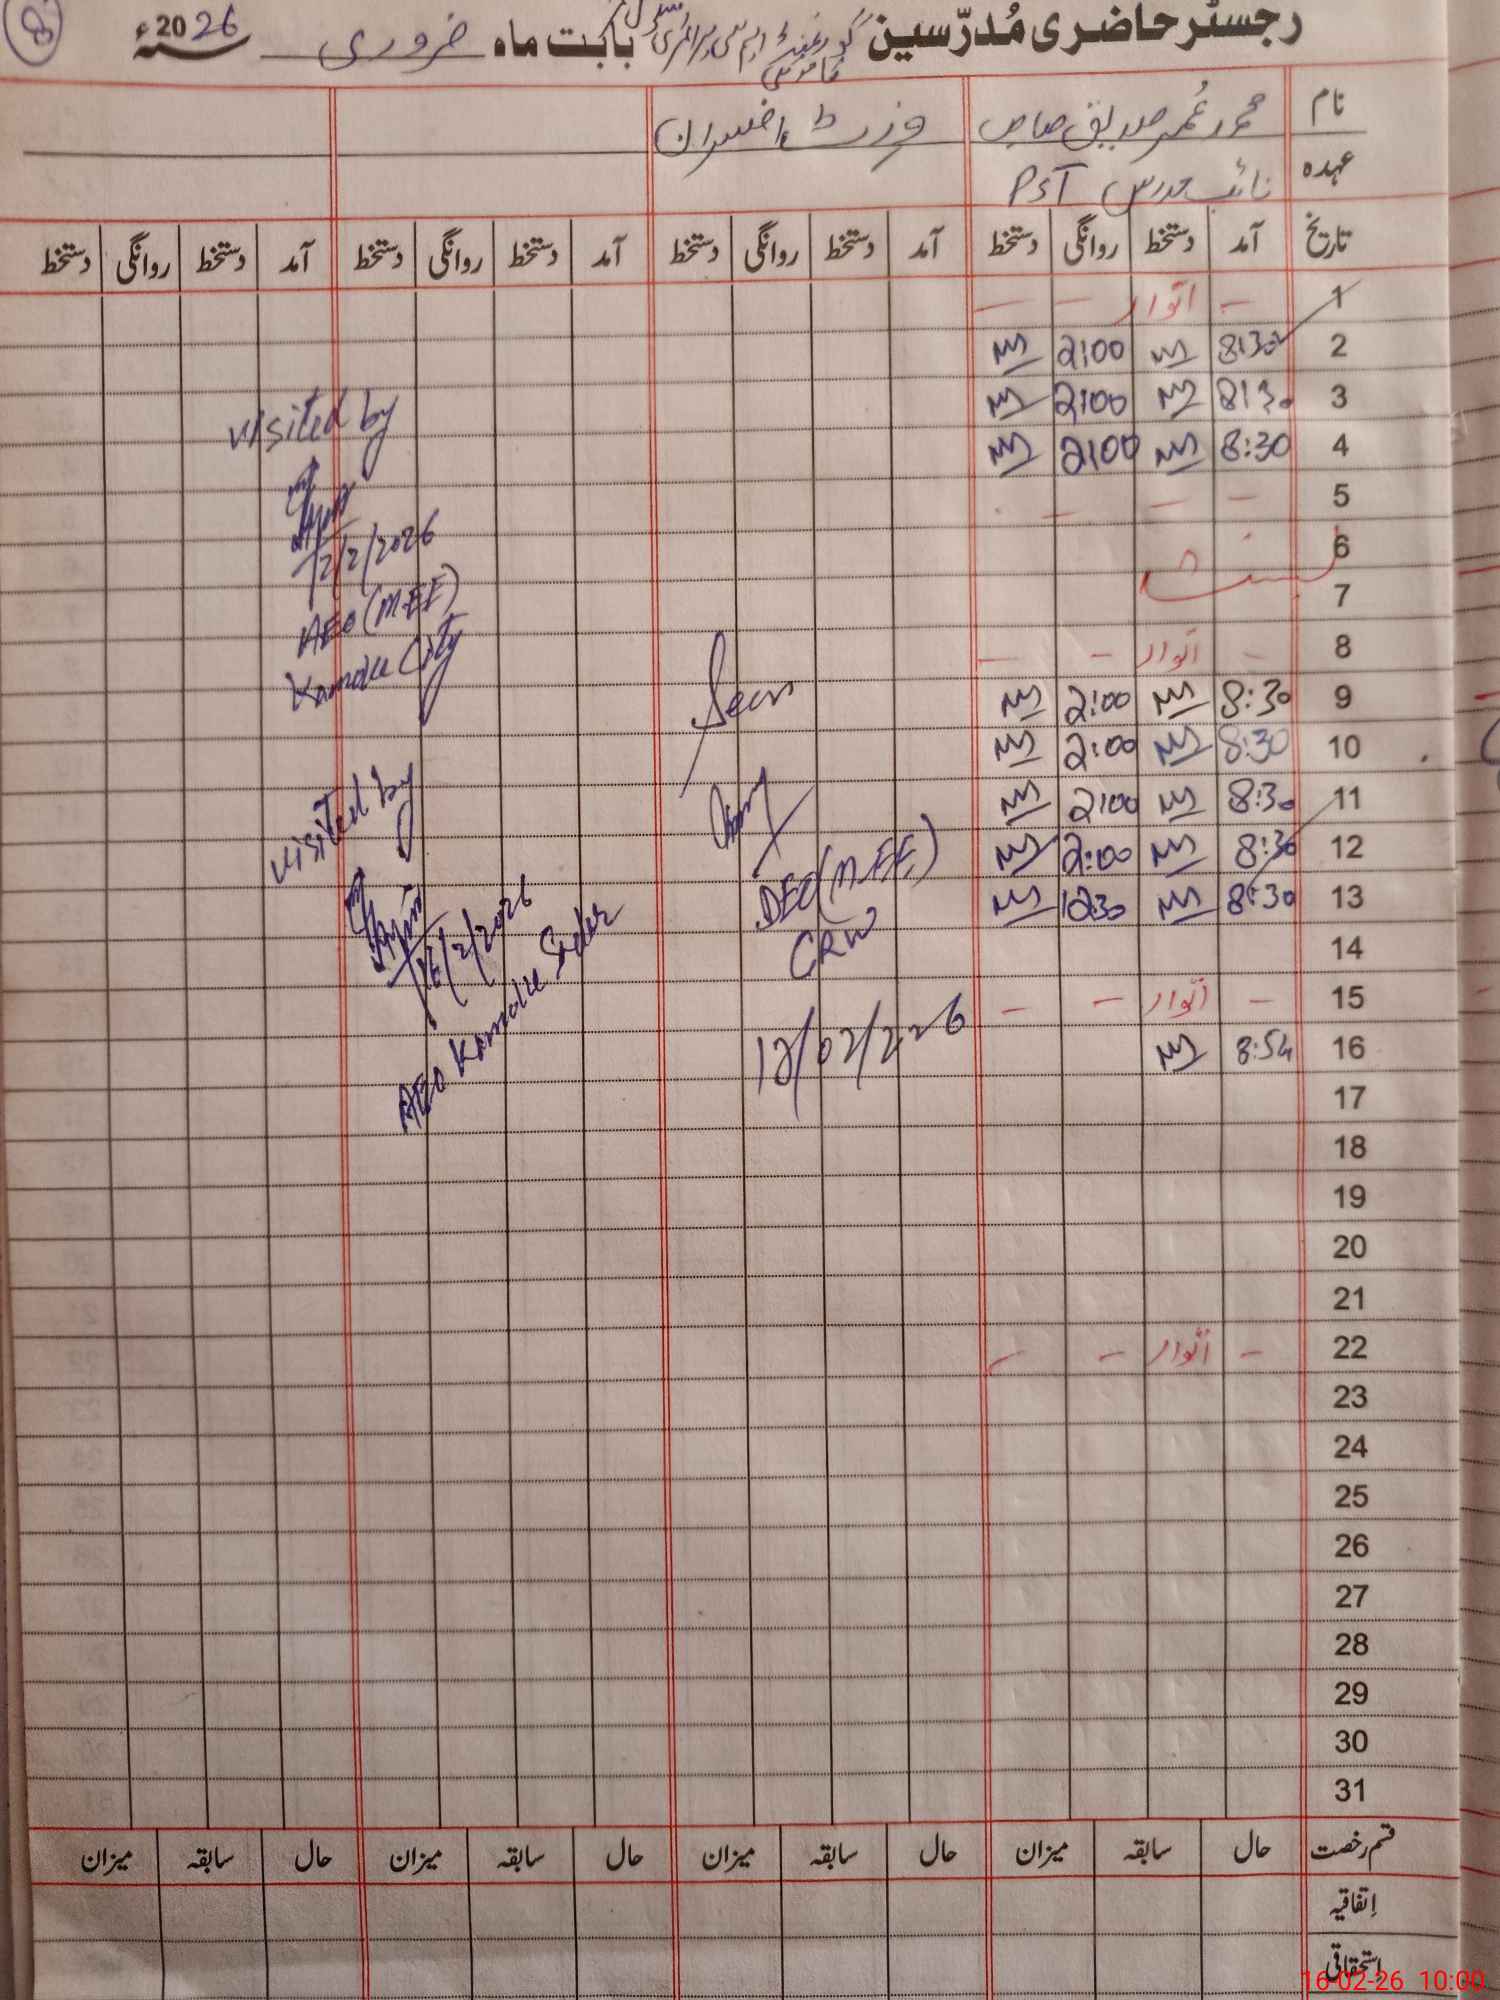 رجسٹر حاضری مُدرّسین گورنمنٹ بابت ماہ فروری سنہ 2026ء
8
نام محمد عمر صدیق صاحب وزٹ افسران
عہدہ نائب مدرس PST
تاریخ آمد دستخط روانگی دستخط آمد دستخط روانگی دستخط آمد دستخط روانگی دستخط آمد دستخط روانگی دستخط
1 - اتوار - -
2 8:30 2:00
3 8:30 2:00
4 8:30 2:00
5 - - -
6
7
8 - اتوار - -
9 8:30 2:00
10 8:30 2:00
11 8:30 2:00
12 8:30 2:00
13 8:30 12:30
14
15 - اتوار - -
16 8:54
17
18
19
20
21
22 - اتوار - -
23
24
25
26
27
28
29
30
31
Seen
DEO (M-EE)
CRW
12/02/2026
visited by
12/2/2026
AEO (M-EE)
Kamoke City
visited by
16/2/2026
AEO Kamoke
قسم رخصت حال سابقہ میزان حال سابقہ میزان حال سابقہ میزان حال سابقہ میزان
اِتفاقیہ
اِستحقاقی
16-02-26 10:00